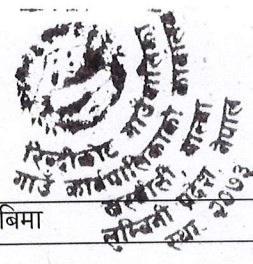 रिब्दीकोट गाउँपालिका
गाउँ कार्यपालिकाको कार्यालय
खस्यौली, पाल्पा
लुम्बिनी प्रदेश, नेपाल
स्था. २०७३
बिमा